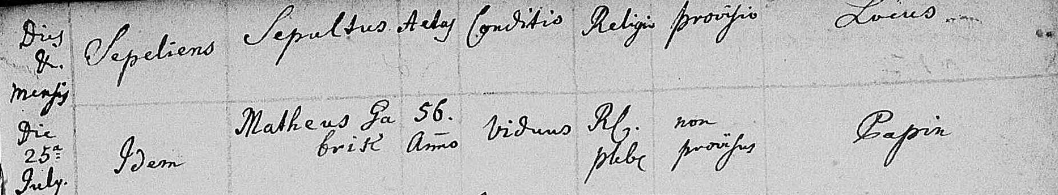 Dies & mensis Sepeliens Sepultus Aetas Conditio Religio provisio Locus
Die 25ta July. Idem Matheus Ga brik 56. Anno Viduus RC. plebe non provisus Papin